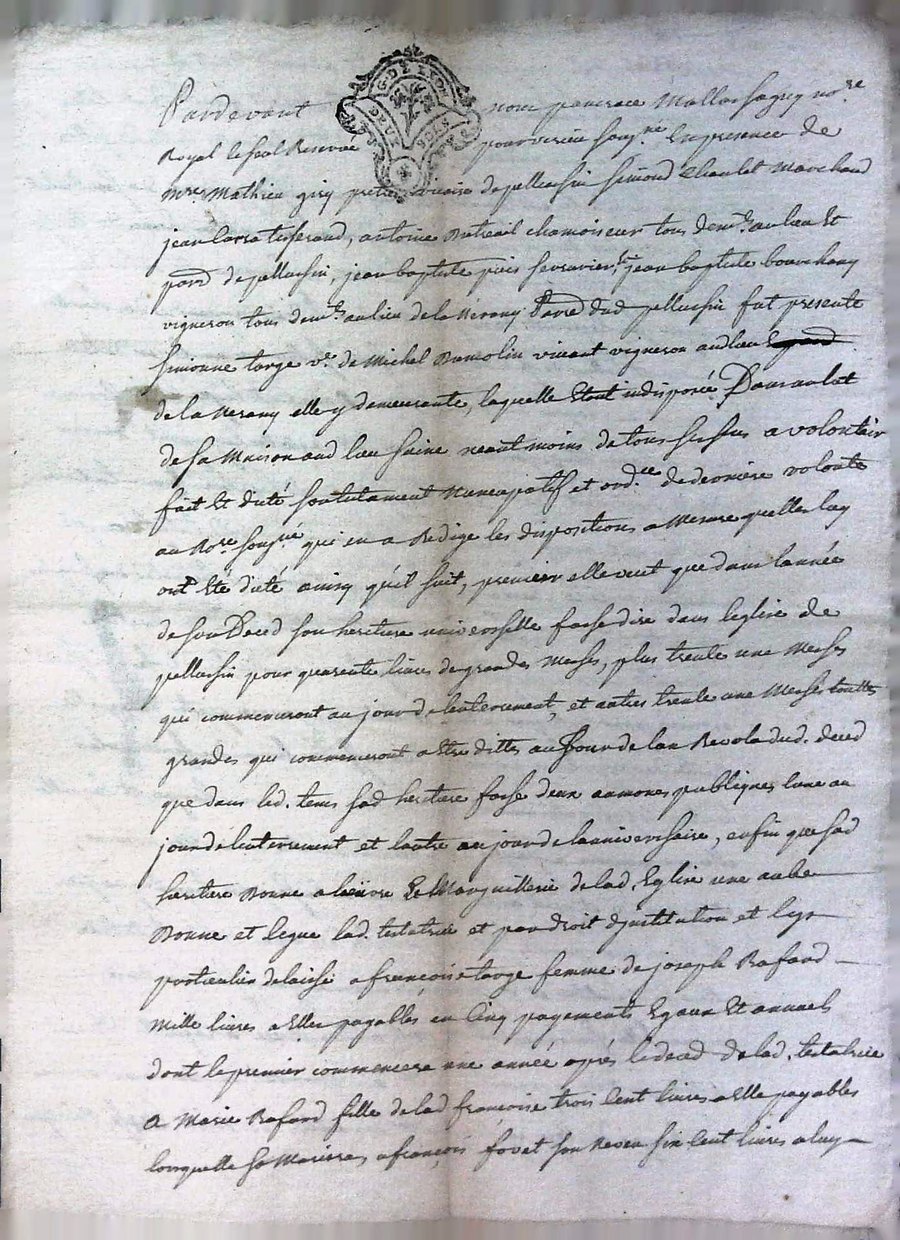 G. DE LYON
DEUX SOLS
Pardevant nous pancrace Mallassagny no.re
Royal le seul Reservé pour verin soug.né En presence de
m.re Mathieu giry pretre vicaire de pellussin simond Chaulet Marchand
jean Corsa tisserand, antoine Butreail chamoiseur tous dem.ts au lieu Et
parr.d de pellussin, jean baptiste pais serrurier, Et jean baptiste bouchany
vigneron tous dem.ts au lieu de la Nerany Parre dud pellussin fut presente
simonne targe v.e de Michel Dumolin vivant vigneron audlieu
de la Nerany elle y demeurante, laquelle Etant indisposée Dans un lit
de sa Maison aud lieu saine neantmoins de tous ses sens a volontair
fait Et dicté son testament Nuncupatif et ord.ce de derniere volonte
au No.re soug.né qui en a Redigé les dispositions a Mesure quelles luy
ont Eté dicté ainsy qu'il suit, premier elle veut que dans lannée
de son Deced son heritiere universelle fasse dire dans leglise de
pellussin pour quarente livres de grandes Messes, plus trente une Messes
qui commenceront au jour de lenterrement, et autres trente une Messes touttes
grandes qui commenceront a Etre dittes au Jour de lan Revolu dud. deced
que dans led. tems sad heritiere fasse deux aumones publiques lune au
jour de lenterrement et lautre au jour de lanniversaire, enfin que sad
heritiere Donne a leuvre Et Marguillerie de lad. Eglise une aube
Donne et legue lad. testatrice et par droit d'institution et legs
particulier delaisse a françoise targe femme de joseph Rafard
Mille livres a Elle payables en Cinq payements Egaux Et annuels
dont le premier commencera une année aprés le deced de lad. testatrice
a Marie Rafard fille de lad françoise trois Cent livres a Elle payables
lorsquelle se Mariera, a françois fovet son Neveu six Cent livres a luy